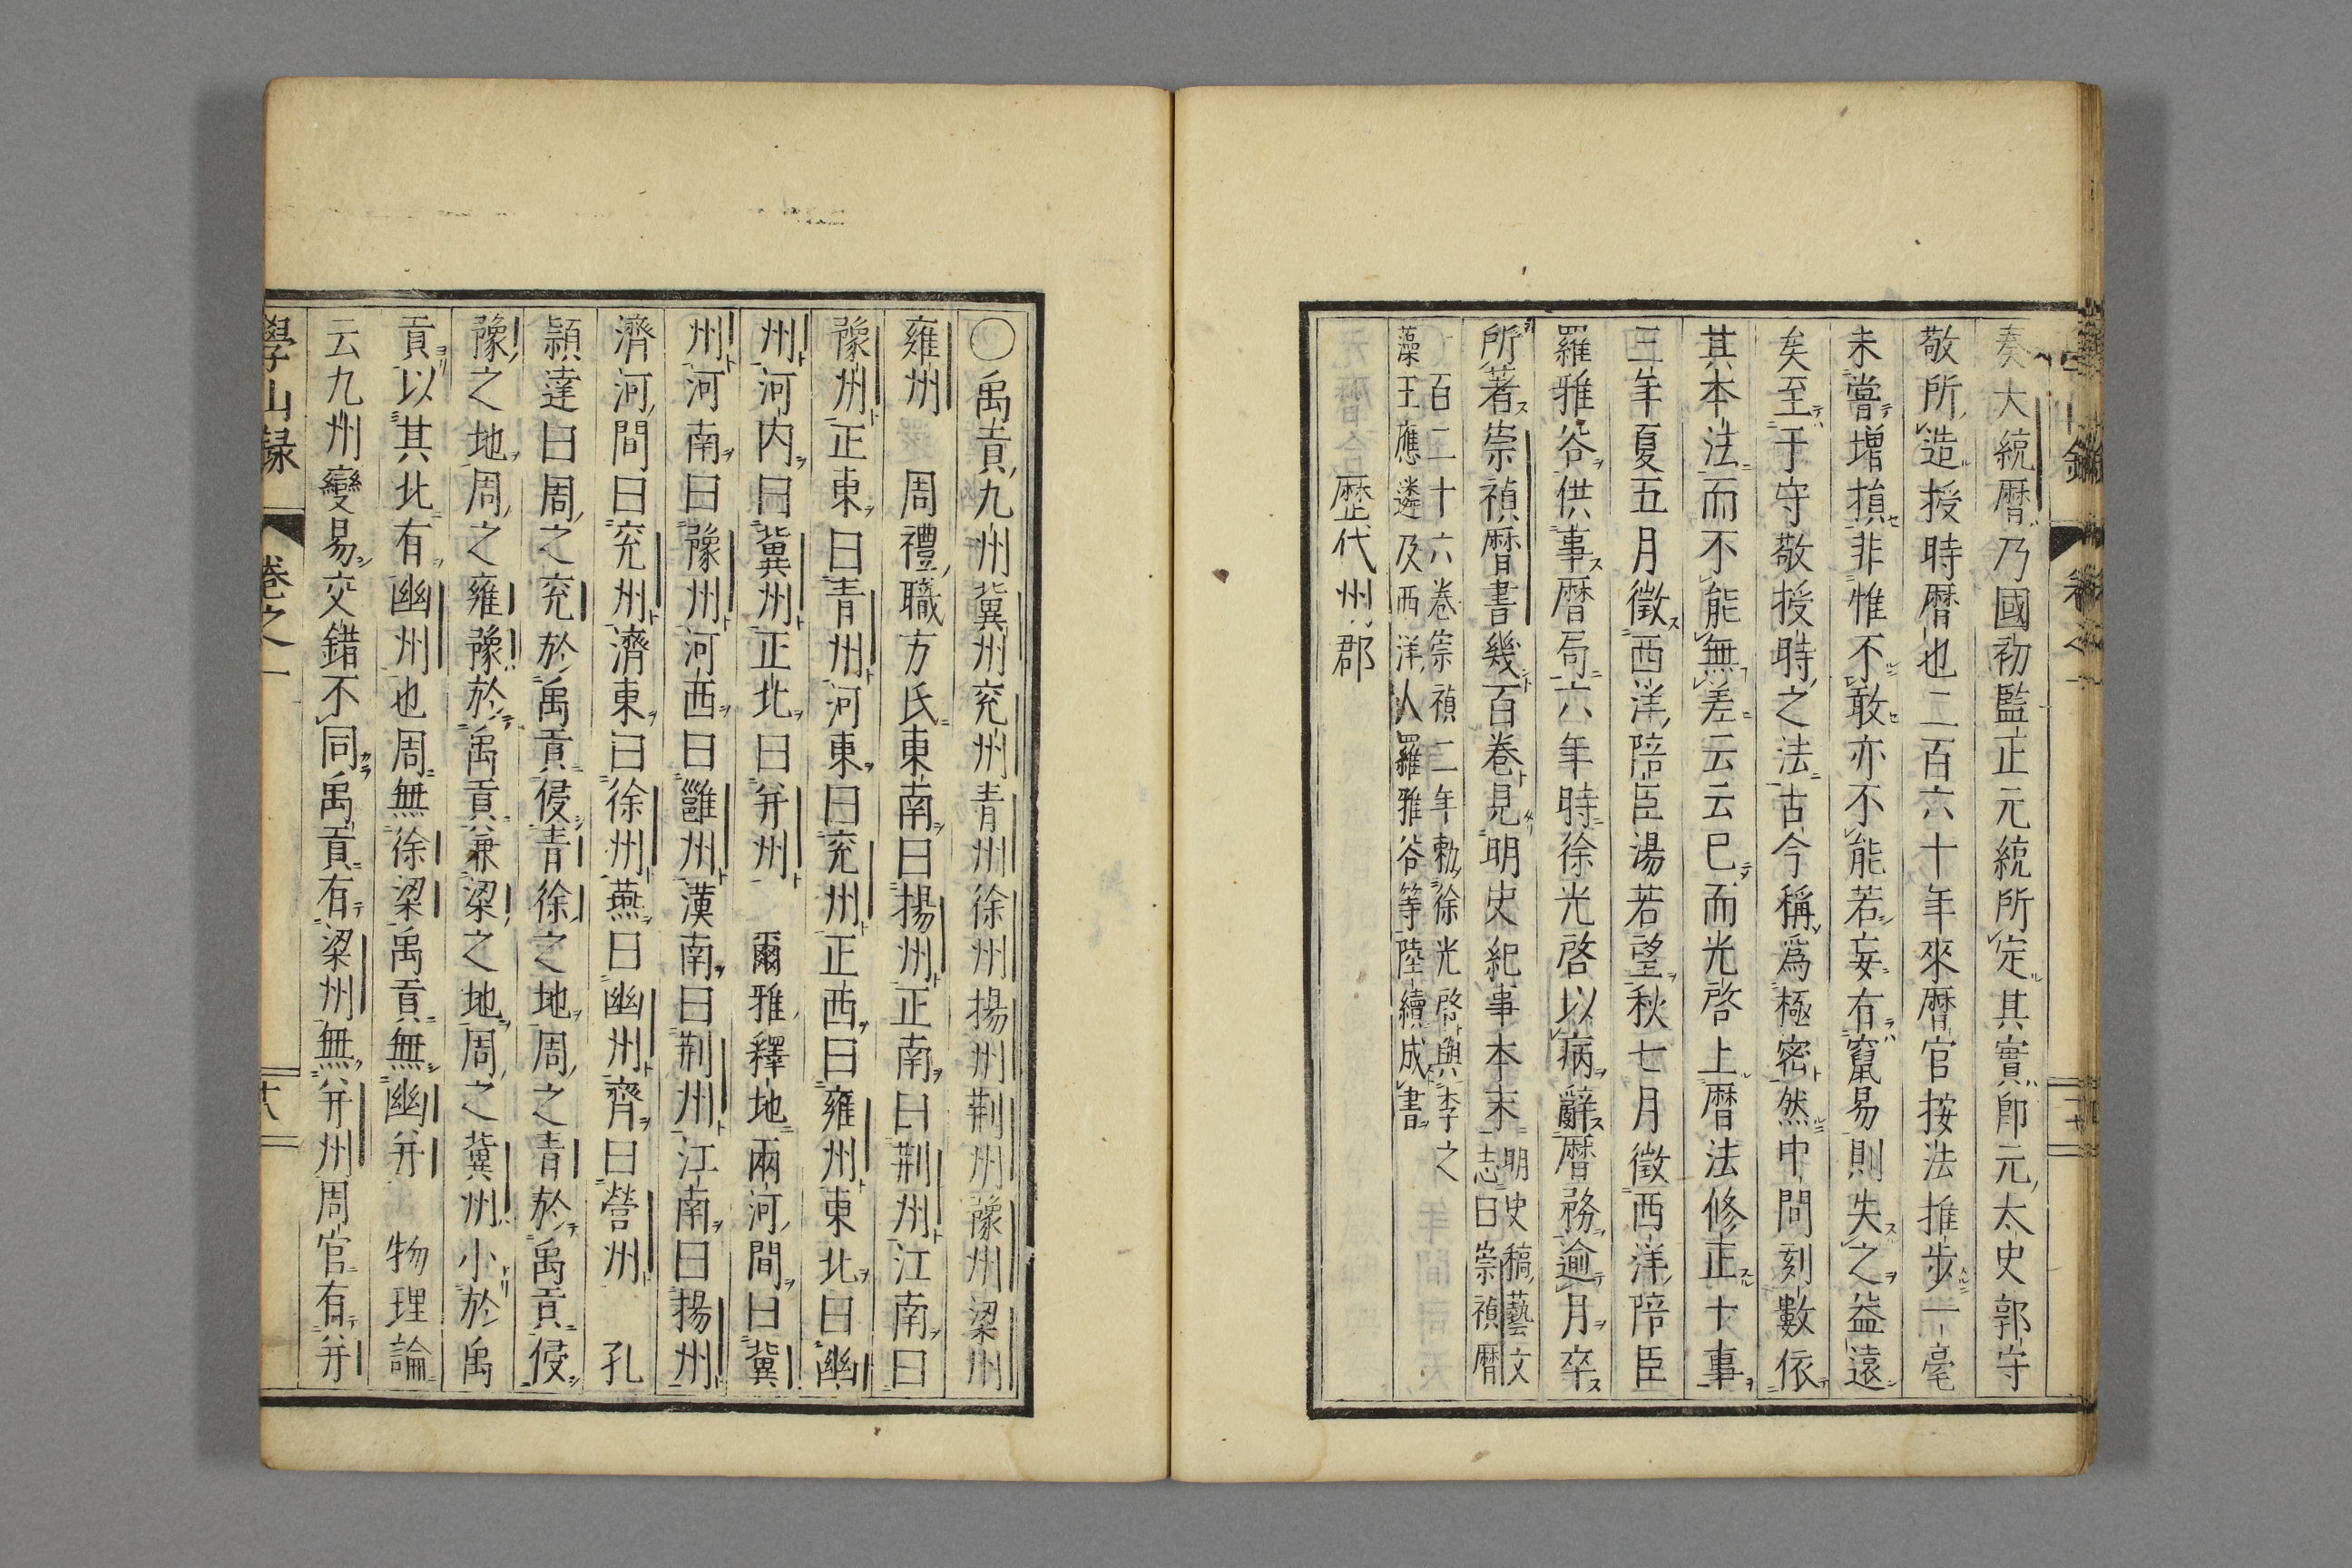 奏大統暦乃國初監正元統所定其實卽元太史郭守
敬所造授時暦也二百六十年來暦官按法推步一毫
未嘗增損非惟不敢亦不能若妄有竄易則失之益遠
矣至于守敬授時之法古今稱爲極密然中間刻數依
其本法而不能無差云云巳而光啓上暦法修正十事
三年夏五月徵西洋陪臣湯若望秋七月徵西洋陪臣
羅雅谷供事暦局六年時徐光啓以病辭暦務逾月卒
所著崇禎暦書幾百卷見明史紀事本末
明史稿藝文
志曰崇禎暦
一百二十六卷崇禎二年勅徐光啓與李之
藻王應遴及西洋人羅雅谷等陸續成書
歴代州郡
〇禹貢九州冀州兖州青州徐州揚州荆州豫州梁州
雍州 周禮職方氏東南曰揚州正南曰荆州江南曰
豫州正東曰青州河東曰兖州正西曰雍州東北曰幽
州河内曰冀州正北曰并州 爾雅釋地兩河間曰冀
州河南曰豫州河西曰雝州漢南曰荆州江南曰揚州
濟河間曰兖州濟東曰徐州燕曰幽州齊曰營州 孔
頴達曰周之兖於禹貢侵青徐之地周之青於禹貢侵
豫之地周之雍豫於禹貢兼梁之地周之冀州小於禹
貢以其北有幽州也周無徐梁禹貢無幽并 物理論
云九州變易交錯不同禹貢有梁州無并州周官有并
學山録 卷之一 十八